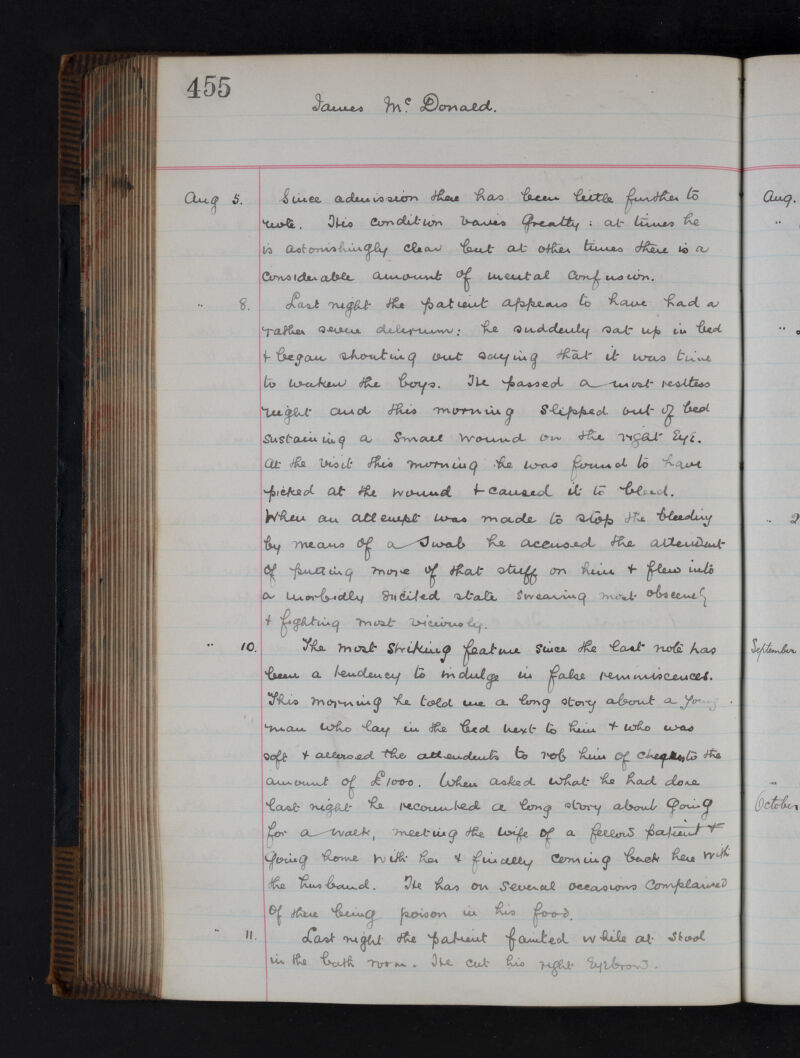 455
James Mc Donald.
Aug 5. Since admission there has been little further to
note. His condition varies greatly : at times he
is astonishingly clear but at other times there is a
considerable amount of mental confusion.
" 8. Last night the patient appears to have had a
rather severe delerium: he suddenly sat up in bed
& began shouting out saying that it was time
to waken the boys. He passed a most restless
night and this morning slipped out of bed
sustaining a small wound on the right Eye.
At the visit this morning he was found to have
picked at the wound & caused it to bleed.
When an attempt was made to stop the bleeding
by means of a swab he accused the attendant
of putting more of that stuff on him & flew into
a morbidly excited state swearing most obscenely
& fighting most viciously.
" 10. The most striking feature since the last note has
been a tendency to indulge in false reminiscences.
This morning he told me a long story about a young
man who lay in the bed next to him & who was
soft & allowed the attendants to rob him of cheques to the
amount of £1000. When asked what he had done
last night he recounted a long story about going
for a walk, meeting the wife of a fellow patient &
going home with her & finally coming back here with
the husband. He has on several occasions complained
of there being poison in his food.
" 11. Last night the patient fainted while at stool
in the bath room. He cut his right Eyebrow.
Aug.
"
"
" 2
September
"
October